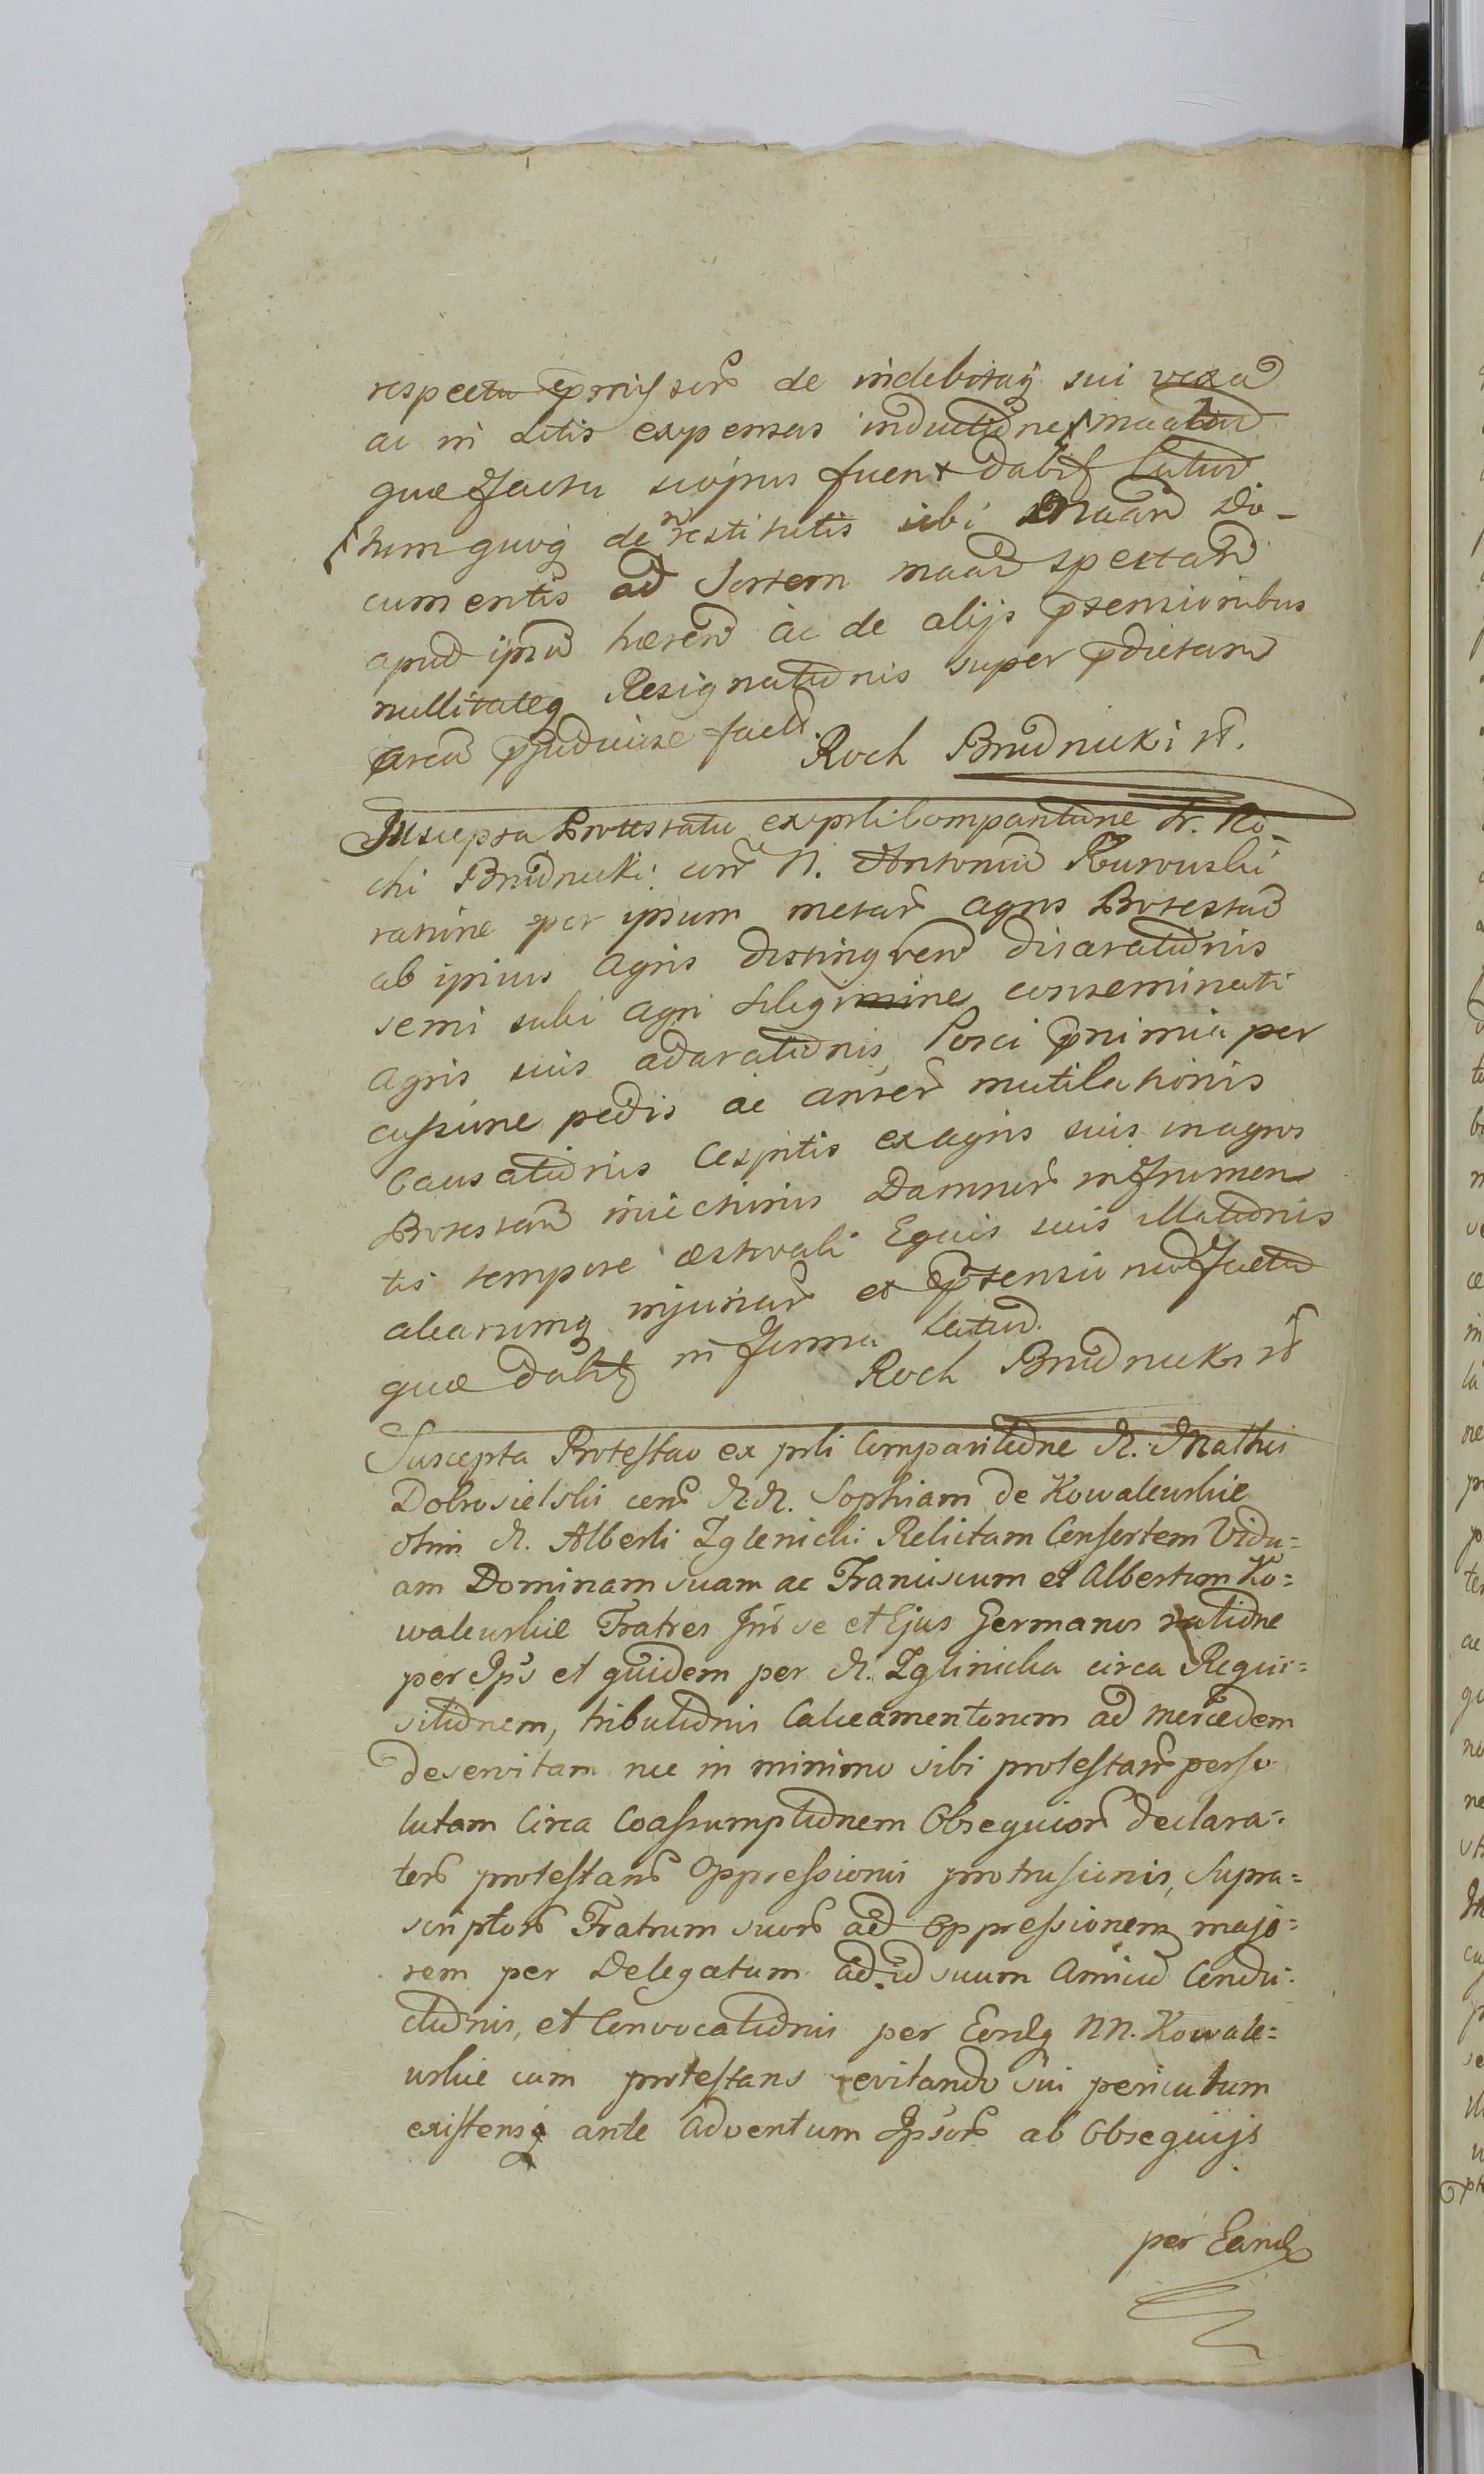 respectu de indebitaq sui vexa
ac in Litis expensas inductione
quæ fuer dabit latius
tum quoq de restitutis sibi Do-
cumentis ad Sortem spectan
apud ipsu hæren ac de alijs prtensionibus
nullitateq Resignationis super pdictam
præjudiciose fact.
Roch Brudnicki
Suscepta Protestatio ex prli Comparitione N. Ro-
chi Brudnicki con N. Antoniu Kurowski
ratione per ipsum metar agris Protestan
ab ipsius agris distingven disaratidnis
semi sulci agri siligine conseminati
agris suis adaratidnis, Porci pnimia per
cussione pedis ac anser mutilationis
Causatidnis Cespitis ex agris suis in agros
Protestan iniectionis Damnor in frumen
tis tempore æstivali Equis suis illatidnis
aliarumq injuriar et prtensionu factu
quæ dabit in forma latius.
Roch Brudnicki
Suscepta Protestao ex prli Comparitidne N. Mathei
Dobrosielski con N.N. Sophiam de Kowalewskie
olim N. Alberti Zglenicki Relictam Consortem Vidu=
am Dominam suam ac Franciscum et Albertum Ko=
walewskie Fratres Int se et Ejus Germanos ratidne
per Ips et quidem per N. Zglinicka circa Requi=
sitidnem, tributidnis Calceamentorum ad mercedem
deservitam nec in minimo sibi protestan perso
lutam Circa Coassumptidnem Obsequior declara=
tor protestans Oppressionis protrusionis, Supra=
scriptor Fratrum suor ad Oppressionem majo=
rem per Delegatum ad id suum Amicu Condu=
ctidnis, et Convocatidnis per Eosdq NN. Kowale=
wskie cum protestans evitando sui periculum
existens ante Adventum Ipsor ab Obsequijs
per Eand